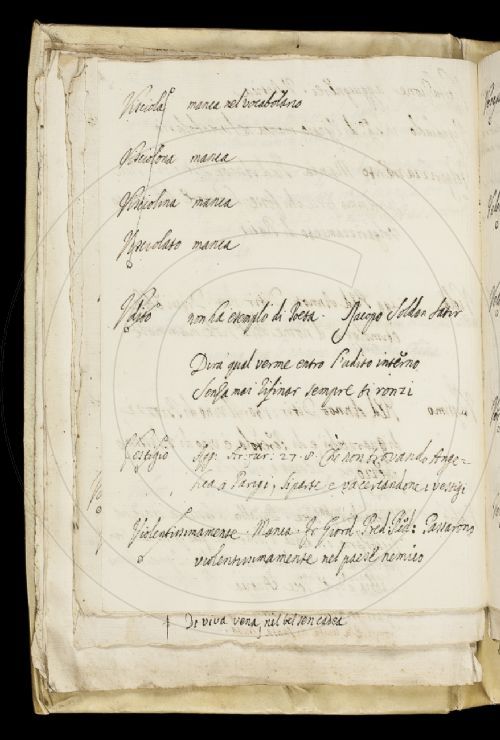 Visciola manca nel vocabolario
Visciolona manca
Visciolina manca
Visciolato manca
Udito non ha esemplo di Poeta. Jacopo Soldan. Satir
Dura qual verme entro l'udito interno
Senza mai rifinar sempre ti ronzi
Vestigio Agg. Ar: fur: 27. 8. Che non trovando Ange=
lica a Parigi, si parte e va cercandone i vestigi
Violentissimamente. Manca. Fr Giord. Pred. Red: Passarono
violentissimamente nel paese nemico
† Di viva vena, nel bel sen cadea